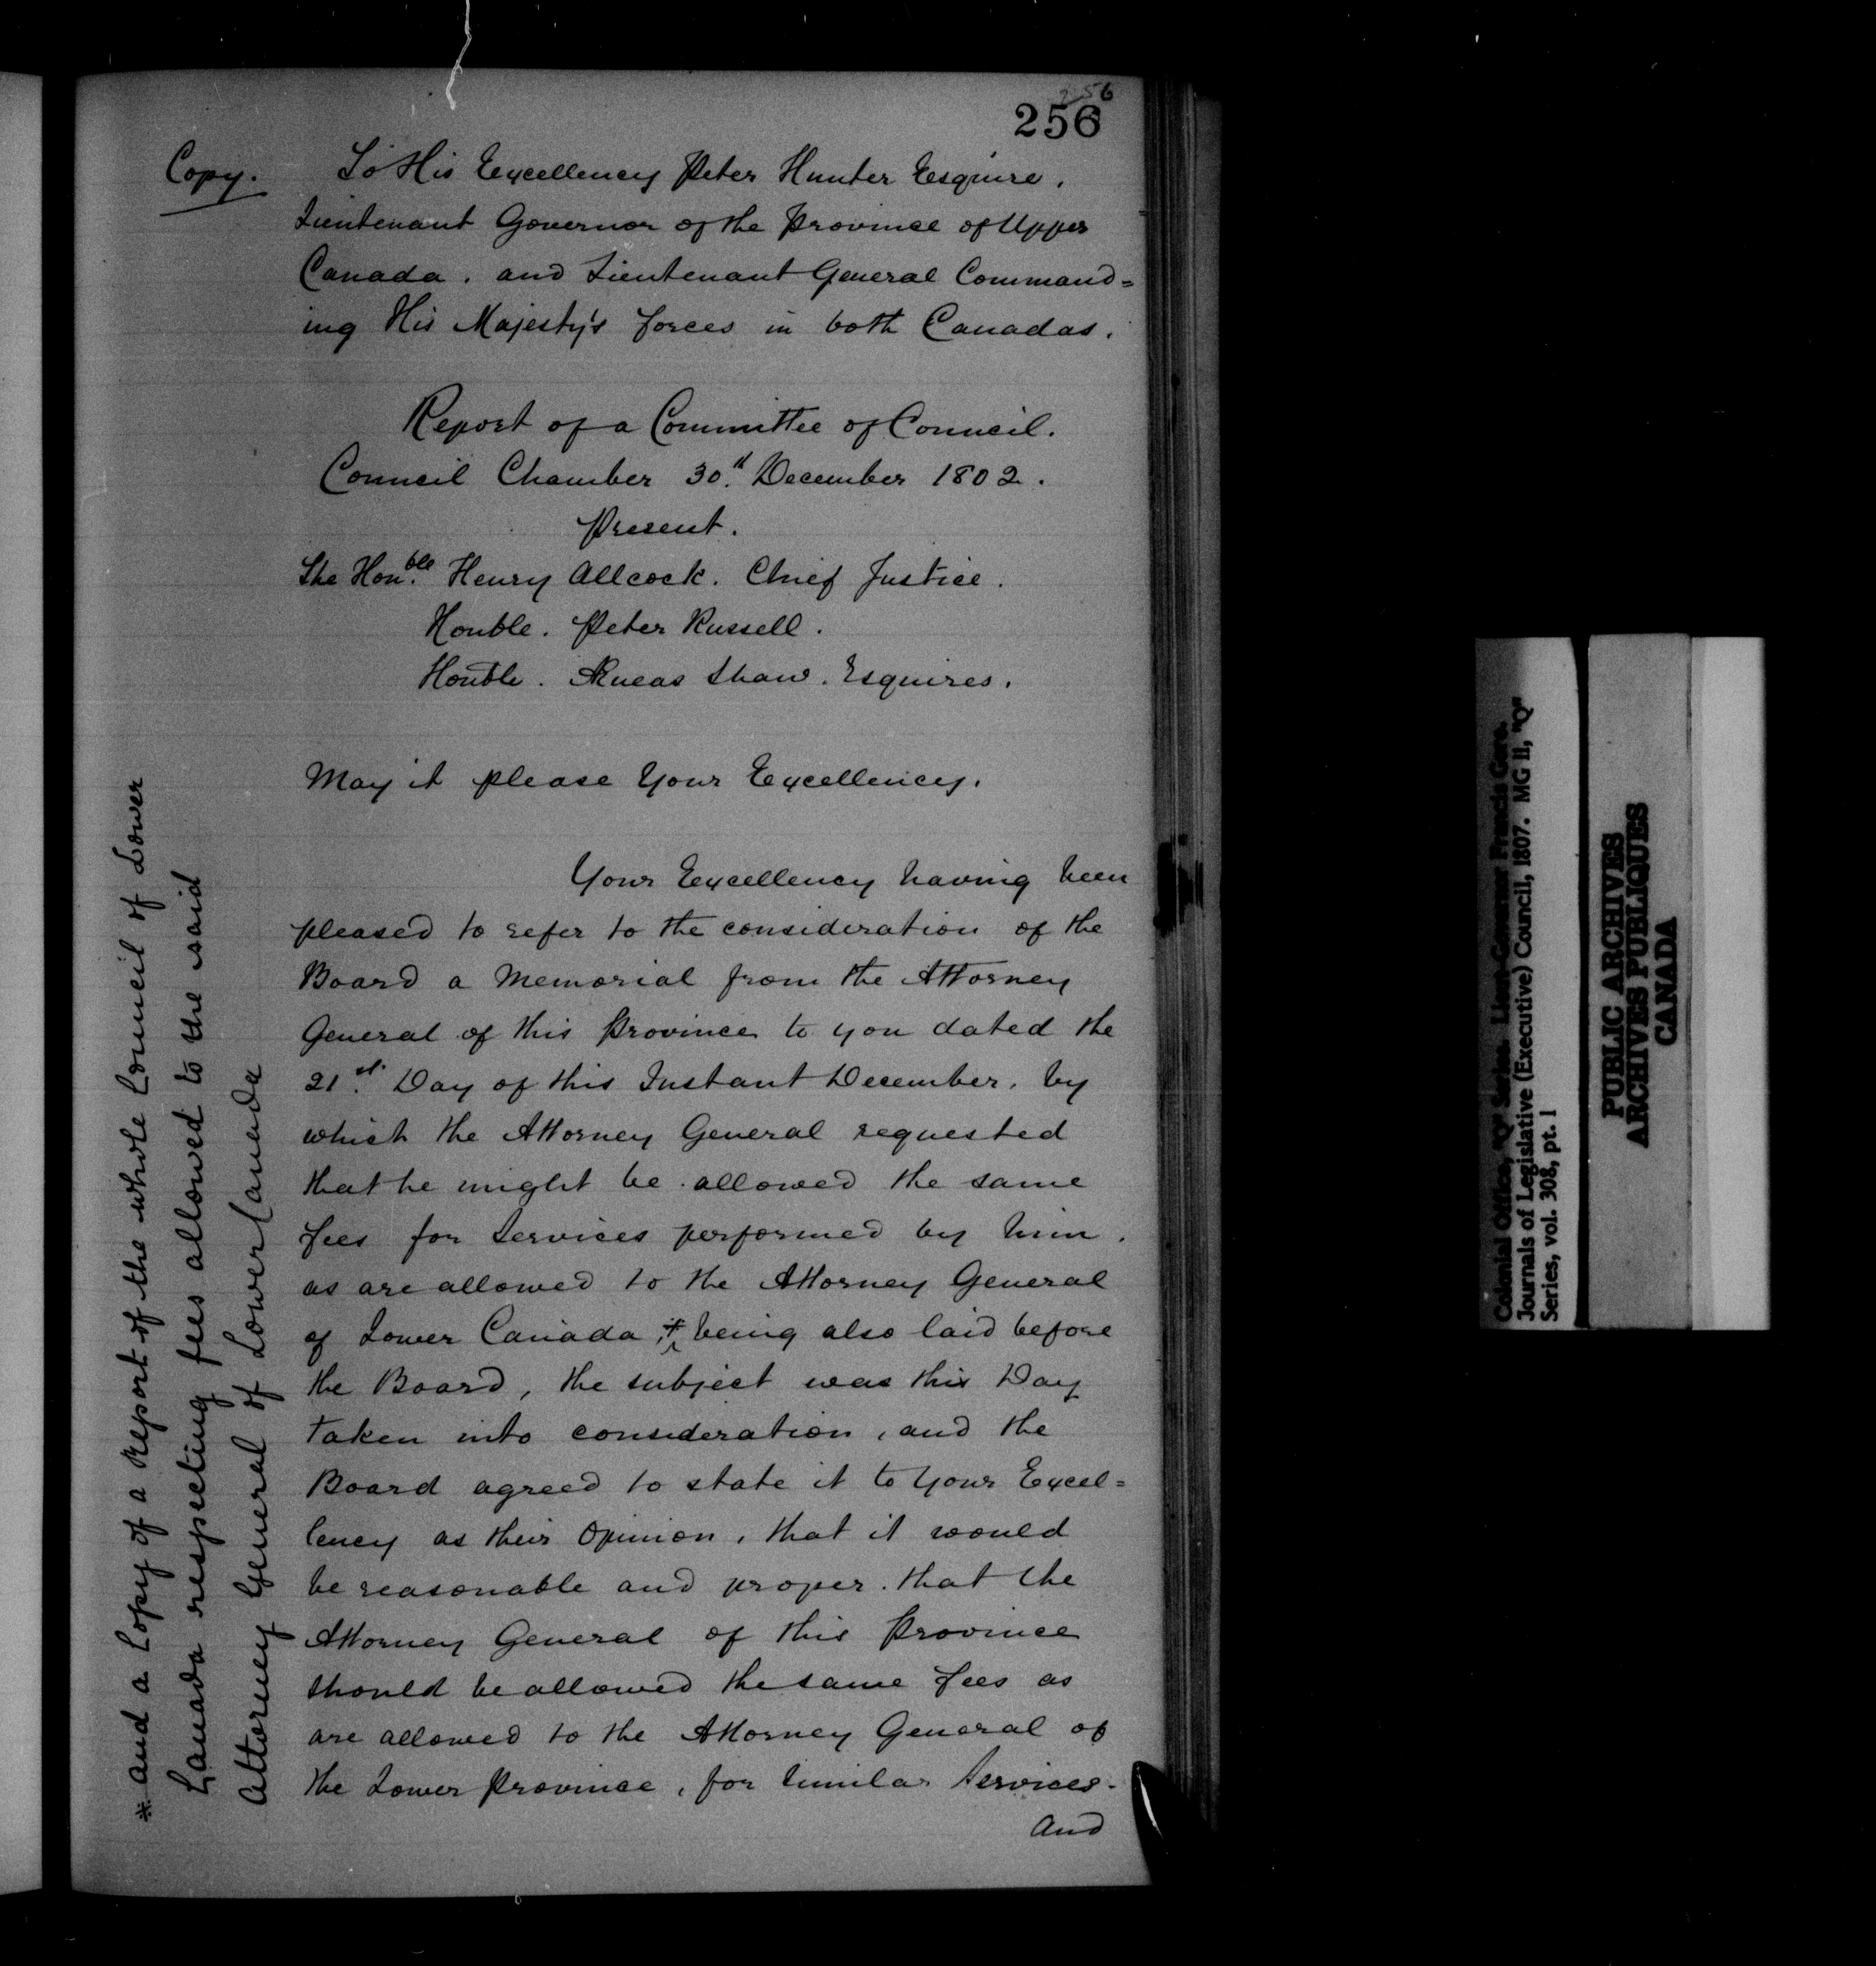 256
256
Copy. To His Excellency Peter Hunter Esquire.
Lieutenant Governor of the Province of Upper
Canada. and Lieutenant General Command=
ing His Majesty's forces in both Canadas.
Report of a Committee of Council.
Council Chamber 30th. December 1802.
Present.
The Honble. Henry Allcock. Chief Justice.
Honble. Peter Russell.
Honble. Aeneas Shaw. Esquires.
May it please Your Excellency.
Your Excellency having been
pleased to refer to the consideration of the
Board a Memorial from the Attorney
General of this Province to you dated the
21st. Day of this Instant December. by
which the Attorney General requested
that he might be allowed the same
fees for Services performed by him.
as are allowed to the Attorney General
of Lower Canada, * being also laid before
the Board, the subject was this Day
taken into consideration, and the
Board agreed to state it to Your Excel=
lency as their Opinion, that it would
be reasonable and proper. that the
Attorney General of this Province
should be allowed the same fees as
are allowed to the Attorney General of
the Lower Province, for similar Services.
And
* and a Copy of a Report of the whole Council of Lower
Canada respecting fees allowed to the said
Attorney General of Lower Canada
Colonial Office, "Q" Series. Lieut-Governor Francis Gore.
Journals of Legislative (Executive) Council, 1807. MG 11, "Q"
Series, vol. 308, pt. 1
PUBLIC ARCHIVES
ARCHIVES PUBLIQUES
CANADA